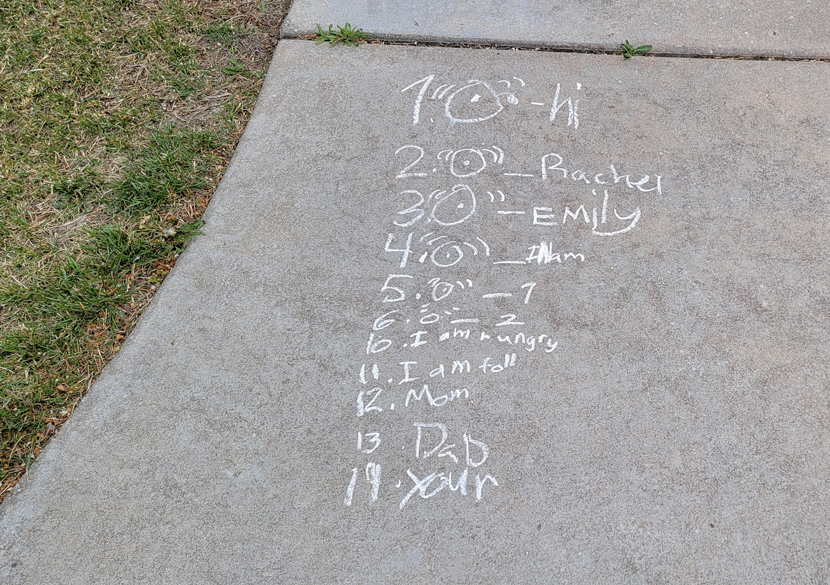 1. - hi
2. - Rachel
3. - EMily
4. - I am
5. - 1
6. - 2
10. I am hungry
11. I am foll
12. Mom
13 DaD
14. your